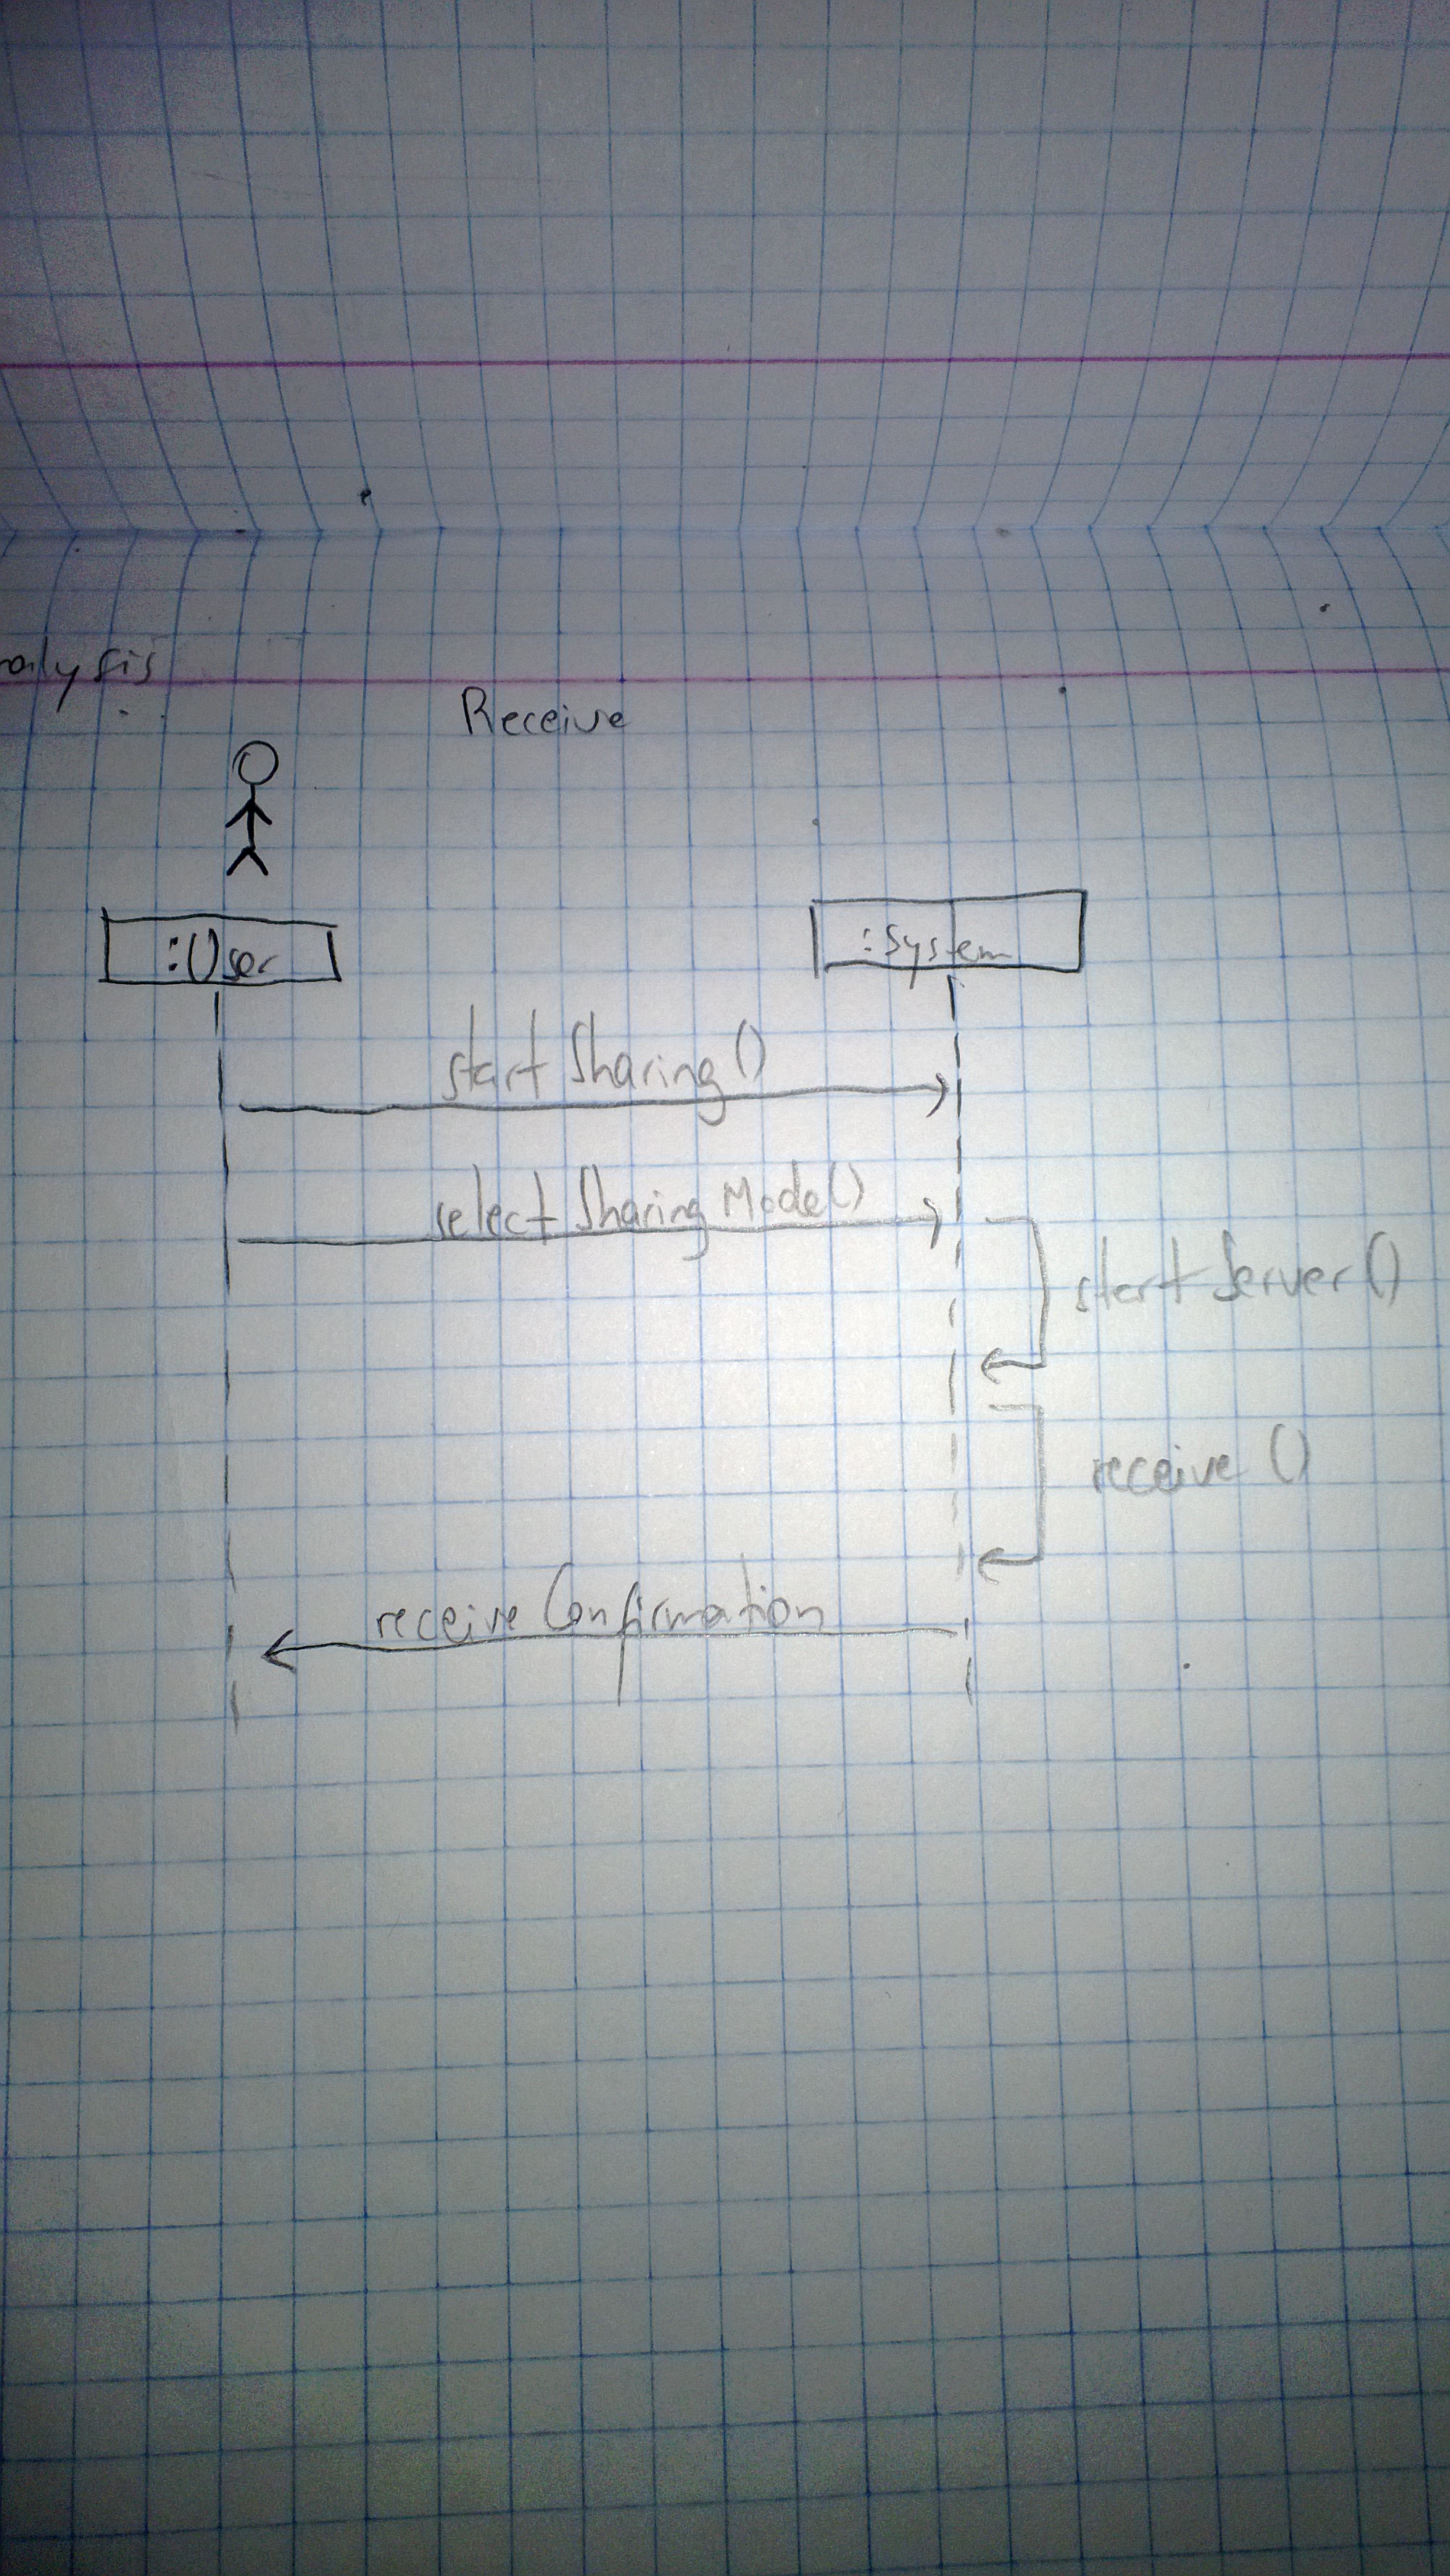 Receive
:User
:System
startSharing()
selectSharingMode()
startServer()
receive()
receiveConfirmation